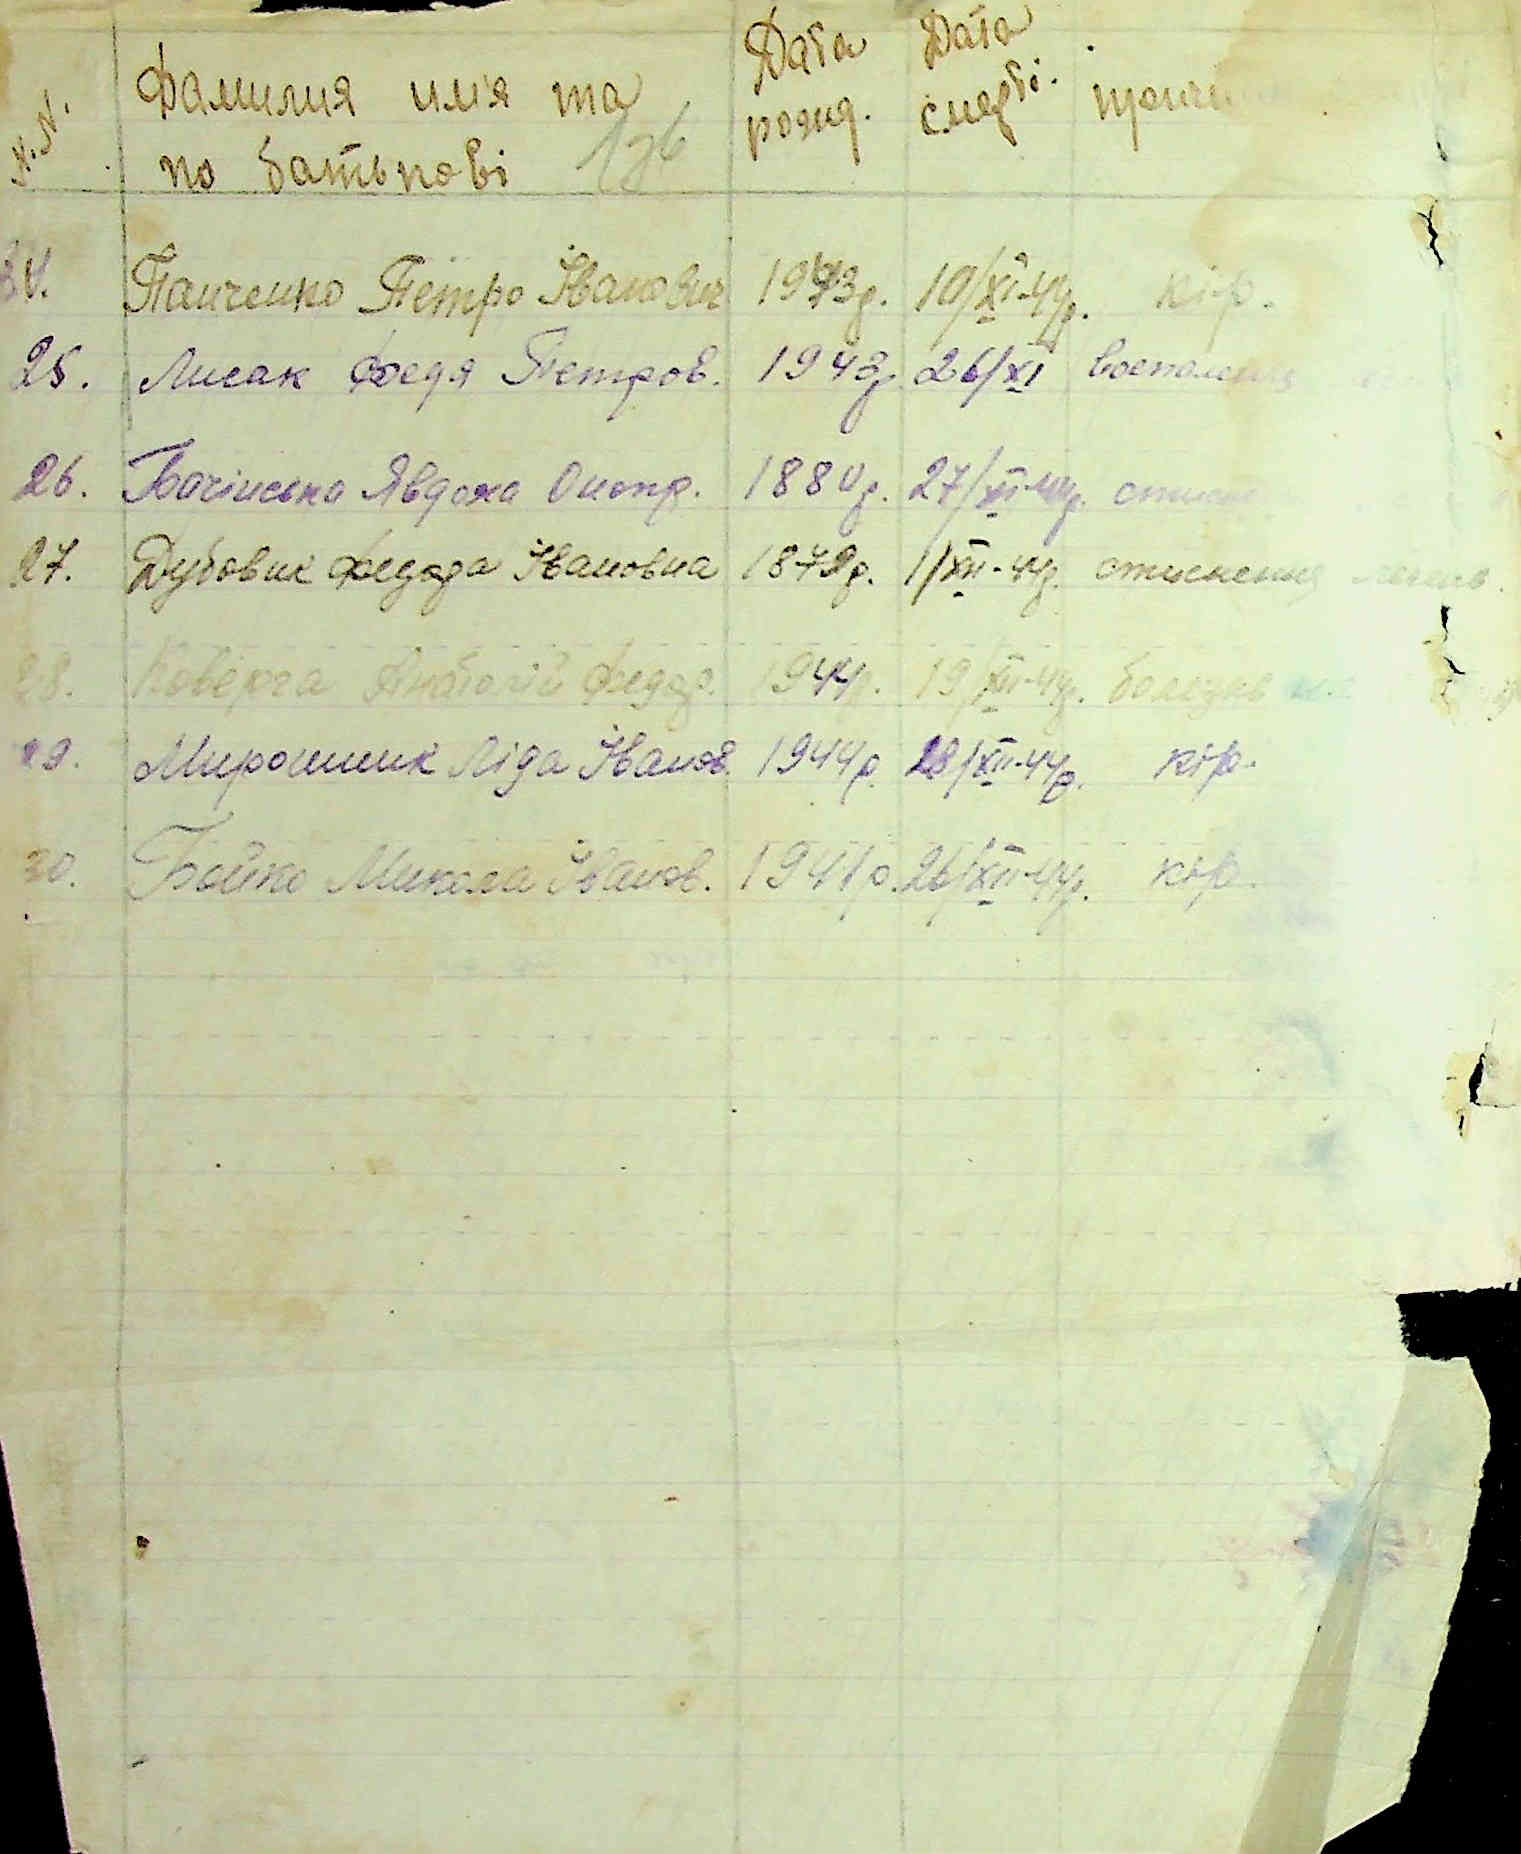 N.N. Фамилия имʼя та по батькові Дата рожд. Дата смерті.
Панченко Петро Іванович 1943р. 10/XI-44р. кір.
25. Лисак Федя Петров. 1943р. 26/XI воспаление
26. Явдоха 1880р. 27/XI-44р.
27. Дубовик Федора Івановна 1879р. 1/XII-44р. стиснення
28. Коверга Анатолій Федор. 1944р. 19/XII-44р. болезнь
29. Мирошник Ліда Іванов. 1944р. 28/XII-44р. кір.
30. Бойко Микола Іванов. 1941р. 26/XII-44р. кір.